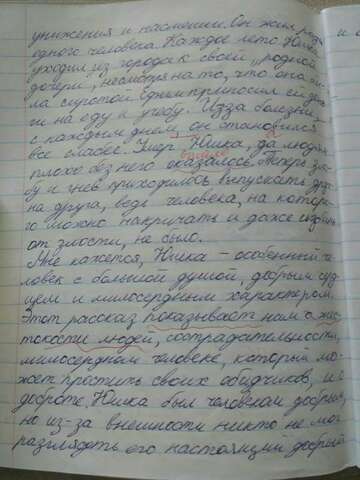 унижения и насмешки. Он жил ради
одного человека. Каждое лето Юшка
уходил из города к своей „родной
дочери", несмотря на то, что она бы-
ла сиротой. Ефим приносил ей день-
ги на еду и учебу. Из-за болезни,
с каждым днем, он становился
все слабее. Умер Юшка, да людям
плохо без него оказалось. Теперь зло-
бу и гнев приходилось выпускать друг
на друга, ведь человека, на которо-
го можно накричать и даже избить
от злости, не было.
Мне кажется, Юшка – особенный че-
ловек с большой душой, добрым серд-
цем и милосердным характером.
Этот рассказ показывает нам о жес-
токости людей, сострадательности,
милосердном человеке, который мо-
жет простить своих обидчиков, и о
доброте. Юшка был человеком добрым,
но из-за внешности никто не мог
разглядеть его настоящий добрый